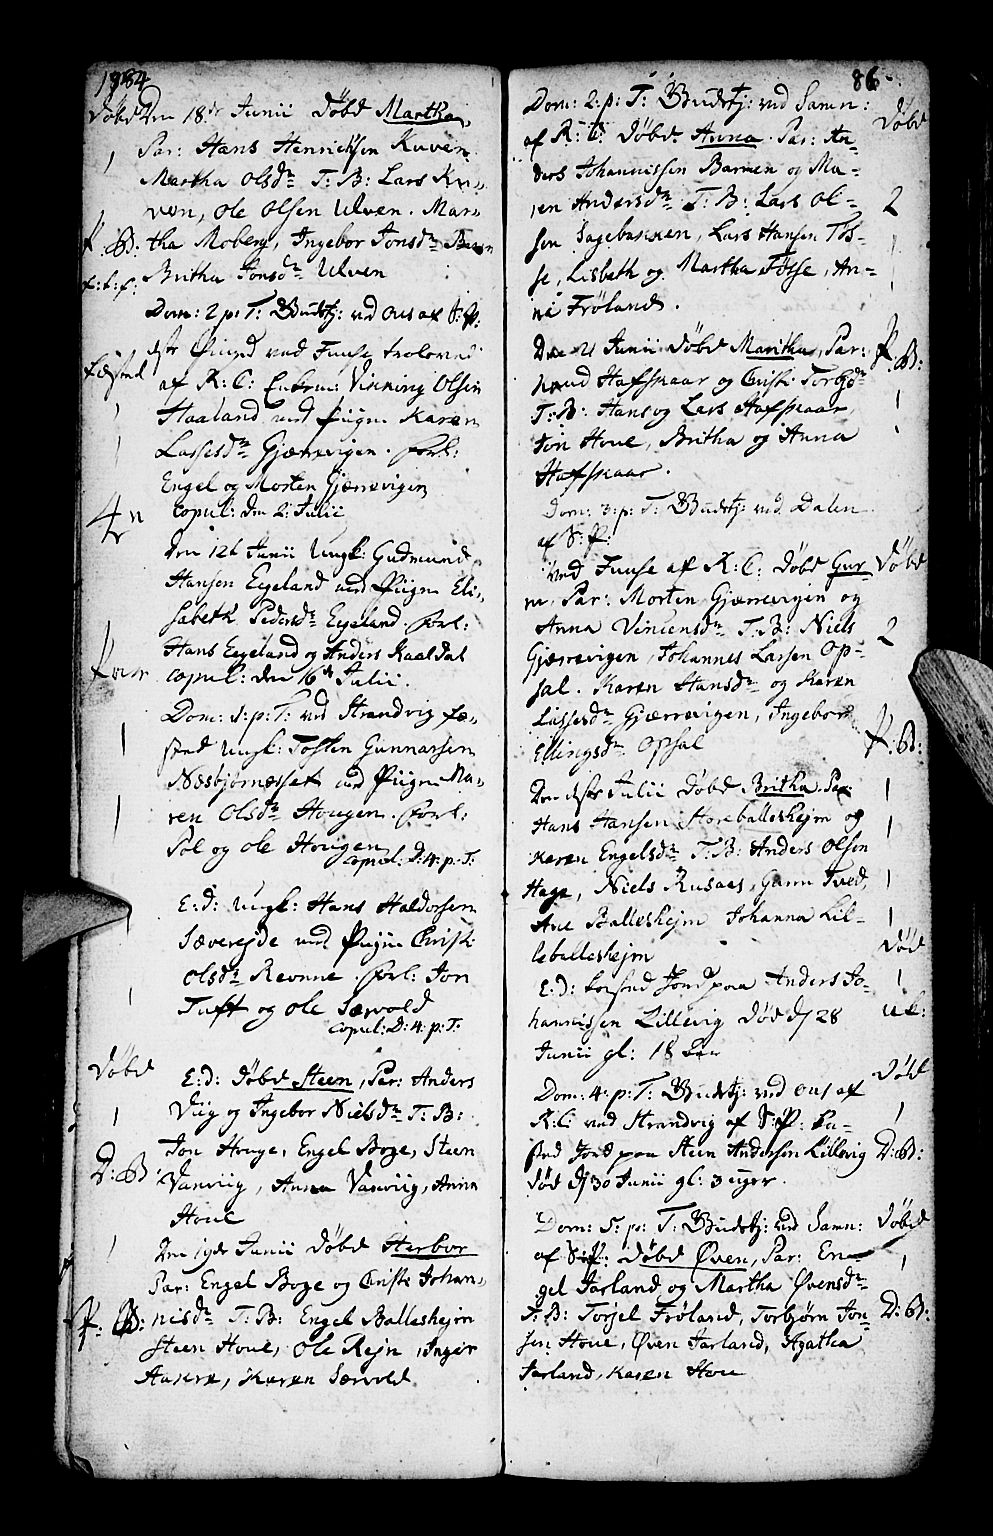 1784
Døbd Den 18de Junii Døbd Martha,
Par: Hans Henrichsen Kuven
Martha Olsdr T: B: Lars Ku-
ven, Ole Olsen Ulven. Mar-
tha Moberg, Ingebor Jonsdr
P. B:
Britha Jonsdr Ulven
Dom: 2 p: T: Gudstj: ved Ous af S: P:
ved Fuuse trolovedᵉ
Fæsted
af R: C: Olsen
Haaland med Piigen Karen
Lassesdr Gjærrevigen. Forl:
Engel og Morten Gjærrevigen
copul: den 2: Julii
Den 12t Junii Ungk: Gudmund
Hansen Eegeland med Piigen Eli-
sabeth Pedersdr Eegeland. Forl:
Hans Eegeland og Anders Kaaldal
copul: den 16de Julii.
Dom: 1: p: T: ved Strandvig fæ-
sted Ungk: Tosten Gunnarsen
Næsbjørnæsset med Piigen Ma-
ren Olsdr Hougen. Forl:
Pol og Ole Hougen
copul: D: 4: p: T:
E: d: Ungk: Hans Haldorsen
Sævereide med Piigen Christ:
Olsdr Revnne. Forl: Jon
Tufft og Ole Sævold
copul: D: 4: p: T:
Døbd
E: d: Døbd Steen, Par: Anders
Viig og Ingebor Nielsdr T: B:
Jon Houge, Engel Boge, Steen
D: B:
Vanviig, Anna Vanviig, Anna
Houe
Den 19de Junii Døbd Herbor
Par: Engel Boge og Christ: Johan-
P: B:
nisdr T: B: Engel Balleshejm
Steen Houe, Ole Rejn, Inger
Aasere, Karen Sævold
86
Dom: 2: p: T: Gudstj: ved Samn:
Døbd
af R: C: Døbd Anna. Par: An-
ders Johannissen Barmen og Ma-
ren Andersdr T: B: Lars Ol-
2
sen Sagebakken, Lars Hansen Tøs-
se, Lisbeth og Martha Tøsse, An-
na Frøland.
Den 21 Junii Døbd Maritha, Par:
P. B:
Knud Hafskaar og Christ: Torbjdr
T: B: Hans og Lars Hafskaar,
Jon Houe, Britha og Anna
Hafskaar.
Dom: 3: p: T: Gudstj: ved Dalen
af S: P:
ved Fuuse af R: C: Døbd Gur
Døbd
m, Par: Morten Gjærrevigen og
Anna Vincensdr T: B: Niels
2
Gjærrevigen, Johannes Lassen Op-
sal. Karen Hansdr og Karen
Lassesdr Gjærrevigen, Ingebor
P: B:
Ellingsdr Opsal
Den Julii Døbd Britha Par:
Hans Hansen Storeballeshejm og
Karen Engelsdr T: B: Anders Olsen
Hage, Niels Rusaas, Gunn Tved,
Ane Balleshejm Johanna Lil-
leballeshejm
Død
E: d: kasted Jord paa Anders Jo-
hannissen Lillevig død d/ 28
Junii gl: 18 Aar
Dom: 4: p: T: Gudstj: ved Ous af
Død
R: C: ved Strandvig af S: P: ka-
sted Jord paa Steen Andersen Lillevig
D: B:
død d/ 30 Junii gl: 3 uger.
Dom: 5: p: T: Gudstj: ved Samn:
Døbd
af S: P: Døbd Øven, Par: En-
gel Jarland og Martha Øvensdr
T: B: Torjel Frøland, Torbjørn Jon-
D: B:
sen Houe, Øven Jarland, Agatha
Jarland, Karen Houe